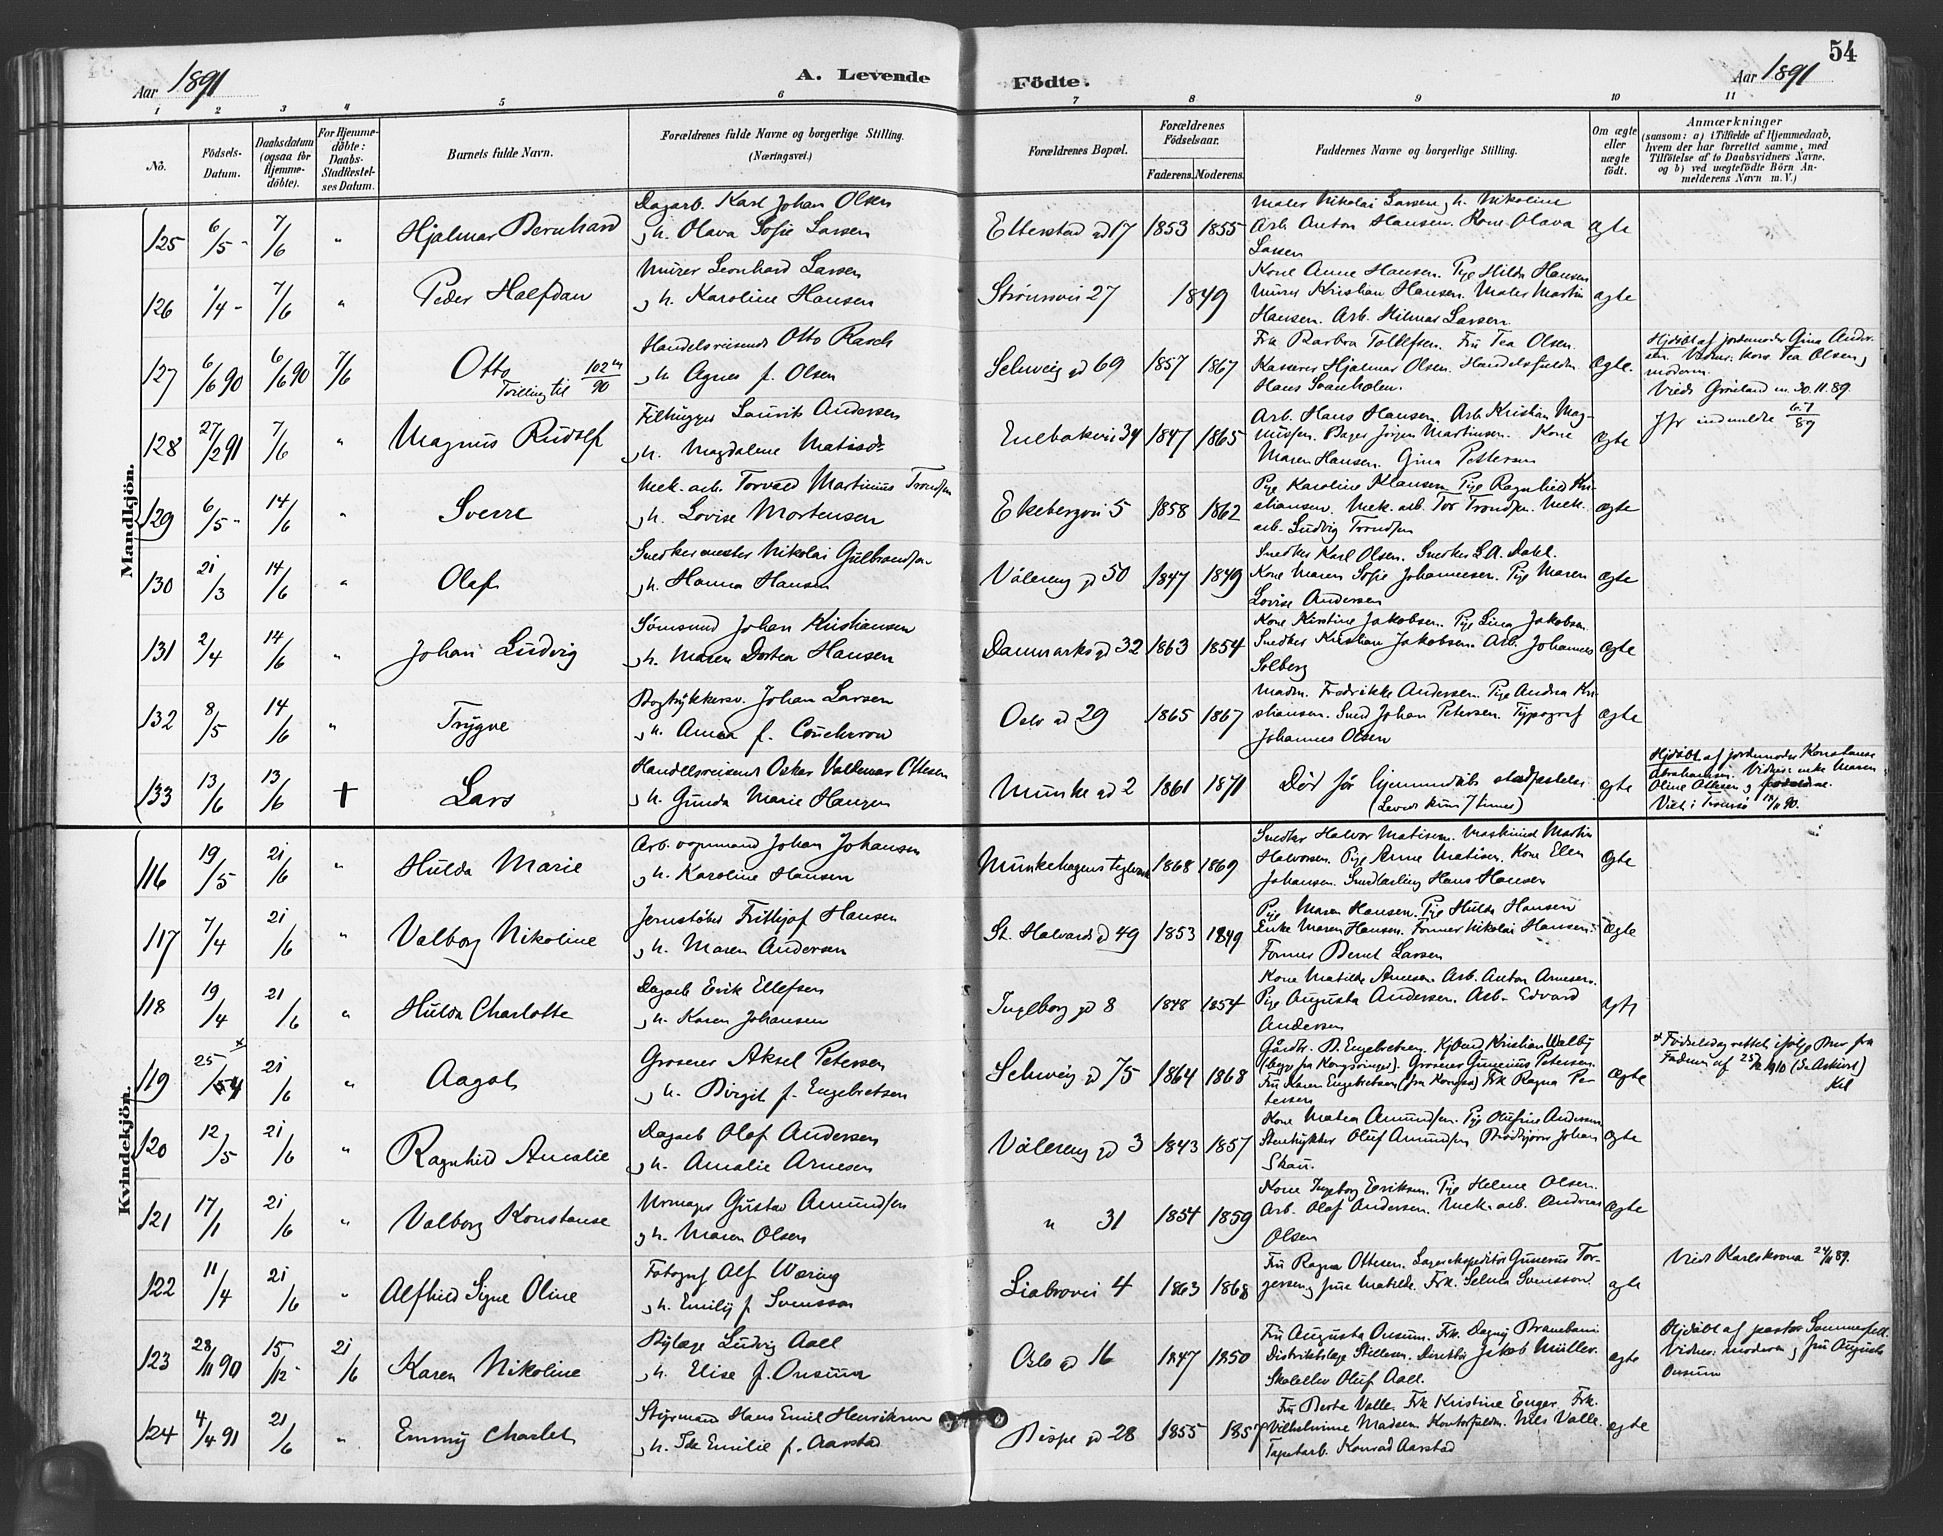 Aar 1891 A. Levende Födte. Aar 1891 54
1 2 3 4 5 6 7 8 9 10 11
No.
Födsels-
Datum.
Daabsdatum
(ogsaa för
Hjemme-
döbte).
For Hjemme-
döbte:
Daabs-
Stadfestel-
ses Datum.
Barnets fulde Navn.
Forældrenes fulde Navne og borgerlige Stilling.
(Næringsvei.)
Forældrenes Bopæl.
Forældrenes
Födselsaar.
Faderens. Moderens.
Faddernes Navne og borgerlige Stilling.
Om ægte
eller
uægte
födt.
Anmærkninger
(saasom: a) i Tilfælde af Hjemmedaab,
hvem der har forrettet samme, med
Tilföielse af to Daabsvidners Navne,
og b) ved uægtefödte Börn An-
melderens Navn m. V.)
Mandkjön.
125 6/5 - 7/6 " Hjalmar Bernhard
Dagarb. Karl Johan Olsen
og h. Olava Sofie Larsen
Etterstad gd 17 1853 1855
Maler Nikolai Larsen og h. Nikoline
Arb. Anton Hansen. Kone Olava
Larsen
ægte
126 1/4 - 7/6 " Peder Halfdan
Murer Leonhard Larsen
og h. Karoline Hansen
Strömsvei 27 1849
Kone Anne Hansen. Pige Hilda Hansen
Murer Kristian Hansen. Maler Martin
Hansen. Arb. Hilmar Larsen
ægte
127 6/6 90 6/6 90 7/6 Otto
Tvilling til 102 /90
Handelsreisende Otto Rasch
og h. Agnes f. Olsen
Schweig gd 69 1857 1867
Frk Barbra Tollefsen. Fru Tea Olsen.
Kasserer Hjalmar Olsen. Handelsfuldm.
Hans Svanholm.
Ægte.
Hjdöbt af jordemoder Gina Ander-
sen. Vidner: kone Tea Olsen og
modern.
Viede Grönland m. 30.11.89.
128 27/2 91 7/6 " Magnus Rudolf
Filhugger Laurits Andersen
og h. Magdalene Matisdr
Enebakvei 34 1847 1865
Arb. Hans Hansen. Arb. Kristian Mag-
nussen. Bager Jörgen Martinsen. Kone
Maren Hansen. Gina Pettersen
Ægte
Jfr indmeldte 6.7/89
129 6/5 - 14/6 " Sverre
Mek. arb. Torvald Martinius Trondsen
og h. Lovise Mortensen
Ekebergvei 5 1858 1862
Pige Karoline Klausen Pige Ragnhild Kri-
stiansen. Mek. arb. Tor Trondsen. Mek.
arb. Ludvig Trondsen
Ægte
130 21/3 14/6 " Olaf
Snedkermester Nikolai Gulbrandsen
og h. Hanna Hansen
Vålereng gd 50 1847 1849
Snedker Karl Olsen. Snedker L.A. Dahl.
Kone Maren Sofie Johannesen. Pige Maren
Lovise Andersen
Ægte
131 2/4 14/6 " Johan Ludvig
Sömand Johan Kristiansen
og h. Maren Dortea Hansen
Danmarks gd 32 1863 1854
Kone Kirstine Jakobsen. Pige Lina Jakobsen
Snedker Kristian Jakobsen. Arb. Johannes
Solberg
Ægte
132 8/5 14/6 " Trygve
Bogtrykkersv. Johan Larsen
og h. Anna f. Coucheron
Oslo gd 29 1865 1867
Madm. Fredrikke Andersen. Pige Andrea Kri-
stiansen. Sned Johan Petersen. Typograf
Johannes Olsen
Ægte
133 13/6 13/6 + Lars
Handelsreisende Oskar Valdemar Ottesen
og h. Gunda Marie Hansen
Munke gd 2 1861 1871
Död för hjemmedaabs stadfæstelse
(Levede kun 7 timer)
ægte
Hjdöbt af jordemoder Konstanse
Abrahamsen. Vidner: enke Maren
Oline Ottesen og forældrene.
Viet i Tromsö 90.
Kvindekjön.
116 19/5 21/6 " Hulda Marie
Arb. opmand Johan Johansen
og h. Karoline Hansen
Munkehagens teglverk 1868 1869
Snedker Halvor Matisen. Maskinist Martin
Halvorsen. Pige Anne Matisen. Kone Elen
Johansen. Smedlærling Hans Hansen
Ægte
117 7/4 21/6 " Valborg Nikoline
Jernstöber Frithjof Hansen
og h. Maren Andersen
St. Halvards gd 49 1853 1849
Pige Maren Hansen. Pige Hilda Hansen
Enke Maren Hansen. Former Nikolai Hansen.
Former Bernt Larsen
Ægte
118 19/4 21/6 " Hulda Charlotte
Dagarb Erik Ellefsen
og h. Karen Johansen
Ingeborg gd 8 1848 1854
Kone Matilde Arnesen. Arb. Anton Arnesen.
Pige Augusta Andersen. Arb. Edvard
Andersen
ægte
119 25/4 x 21/6 " Aagot
Grosserer Aksel Petersen
og h. Birgit f. Engebretsen
Schweig gd 75 1864 1868
Gårdbr. B. Engebretsen. Kjöbmd Kristian Walby
(begge fra Kongsvinger). Grosserer Gunerius Petersen.
Fru Karen Engebretsen (fra Kongsv.) Frk Ragna Pe-
tersen
Ægte
x Födselsdag rettet ifölge Brev fra
Faderen af 1910 (Se Arkivet)
120 12/5 21/6 " Ragnhild Amalie
Dagarb Olaf Andersen
og h. Amalie Arnesen
Vålereng gd 3 1843 1857
Kone Matea Amundsen. Pige Olufine Andersen
Stentrykker Oluf Amundsen Johan
Skau.
Ægte
121 17/1 21/6 " Valborg Konstanse
Urmager Gustav Amundsen
og h. Maren Olsen
" 31 1854 1859
Kone Ingeborg Eriksen. Pige Helene Olsen.
Arb. Olaf Andersen. Mek. arb. Andreas
Olsen
Ægte
122 11/4 21/6 " Alfhild Signe Oline
Fotograf Alf Wæring
og h. Emily f Svensson
Liabrovei 4 1863 1868
Fru Ragna Ottesen. Lagerekspeditör Gunerius Tor-
gersen og frue Matilde. Frk. Selma Svensson
ægte
Viede Karlskrona 24/11 89.
123 28/11 90 15/12 - 21/6 Karen Nikoline
Bylæge Ludvig Aall
og h. Elise f. Onsum
Oslo gd 16 1847 1850
Fru Augusta Onsum. Frk. Dagny
Distriktslæge Stillesen. Direktör Jakob Müller.
Skoleelev Oluf Aall.
ægte
Hjdöbt af pastor Sommerfelt.
Vidner: moderen og fru Augusta
Onsum
124 4/4 91 21/6 " Emmy Charlot
Styrmand Hans Emil Henriksen
og h. Ida Emilie f. Aarstad
Bispe gd 28 1855 1857
Fru Berte Valle. Frk Kristine Enger. Frk.
Vilhelmine Madsen. Kontorfuldm. Nils Valle.
Tapetarb. Konrad Aarstad
ægte